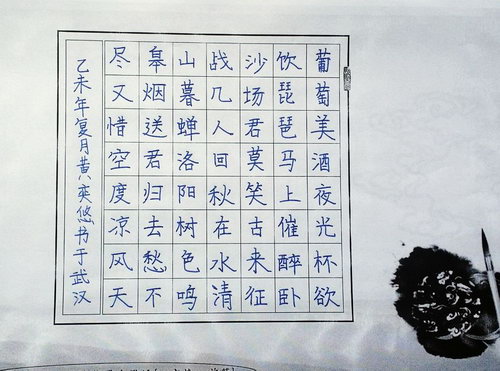 葡萄美酒夜光杯欲
饮琵琶马上催醉卧
沙场君莫笑古来征
战几人回秋在水清
山暮蝉洛阳树色鸣
皋烟送君归去愁不
尽又惜空度凉风天
乙未年夏月黄奕悠书于武汉